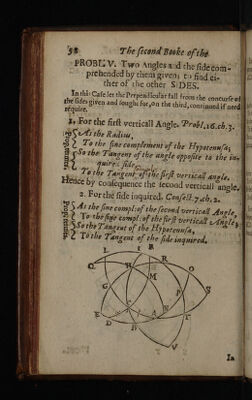 52 The second Booke of the
PROBL. V. Two Angles and the side com-
prehended by them given; to find ei-
ther of the other SIDES.
In this Case let the Perpendicular fall from the concurse of
the sides given and sought for, on the third, continued if need
require.
1. For the first verticall Angle. Probl. 16. ch. 3.
As the Radius,
To the sine complement of the Hypotenusa;
So the Tangent of the angle opposite to the in-
quired side,
To the Tangent of the first verticall angle.
Hence by consequence the second verticall angle.
2. For the side inquired. Consect. 7. ch. 2.
As the sine compl: of the second verticall Angle,
To the sine compl: of the first verticall Angle;
So the Tangent of the Hypotenusa,
To the Tangent of the side inquired.
In